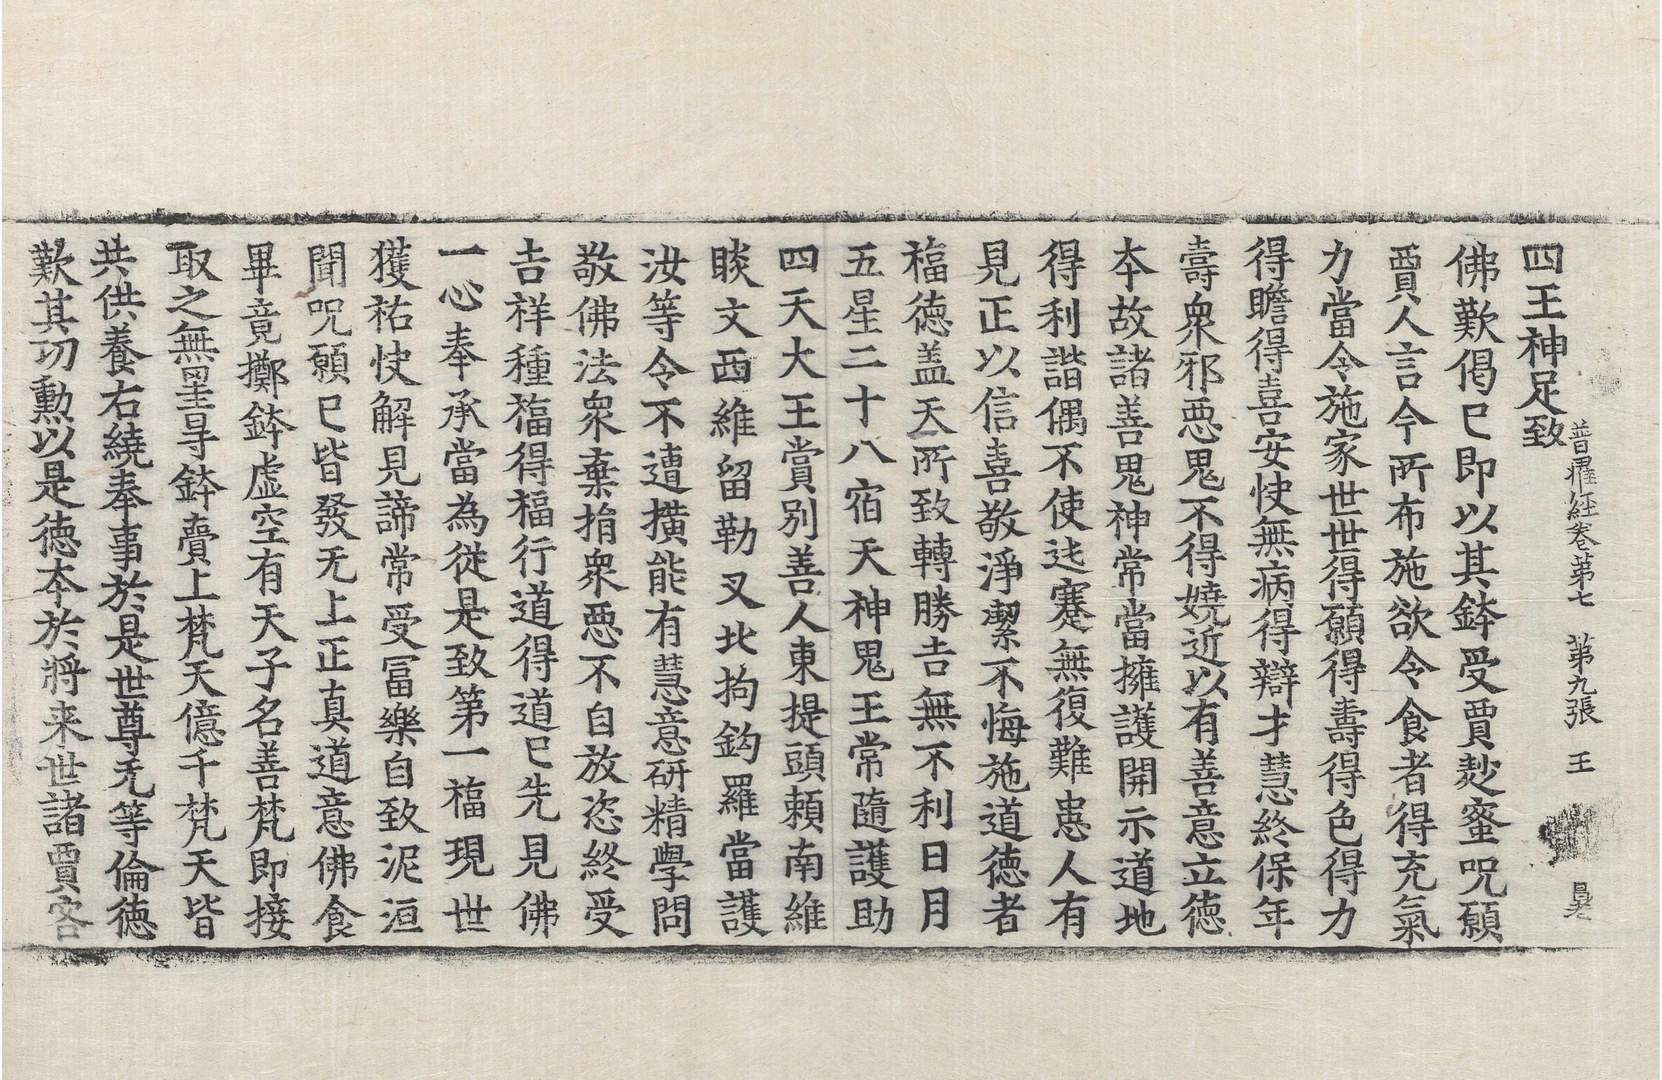 普曜經卷第七 第九張 王
四王神足致
佛歎偈已即以其鉢受賈麨蜜呪願
賈人言今所布施欲令食者得充氣
力當令施家世世得願得壽得色得力
得瞻得喜安快無病得辯才慧終保年
壽衆邪惡鬼不得嬈近以有善意立德
本故諸善鬼神常當擁護開示道地
得利諧偶不使迍蹇無復難患人有
見正以信喜敬淨潔不悔施道德者
福德盖天所致轉勝吉無不利日月
五星二十八宿天神鬼王常隨護助
四天大王賞別善人東提頭賴南維
睒文西維留勒叉北拘鈎羅當護
汝等令不遭撗能有慧意研精學問
敬佛法衆棄捐衆惡不自放恣終受
吉祥種福得福行道得道已先見佛
一心奉承當為從是致第一福現世
獲祐快解見諦常受冨樂自致泥洹
聞呪願已皆發无上正真道意佛食
畢竟擲鉢虛空有天子名善梵即接
取之無㝵鉢賷上梵天億千梵天皆
共供養右繞奉事於是世尊无等倫德
歎其功勲以是德本於將来世諸賈客